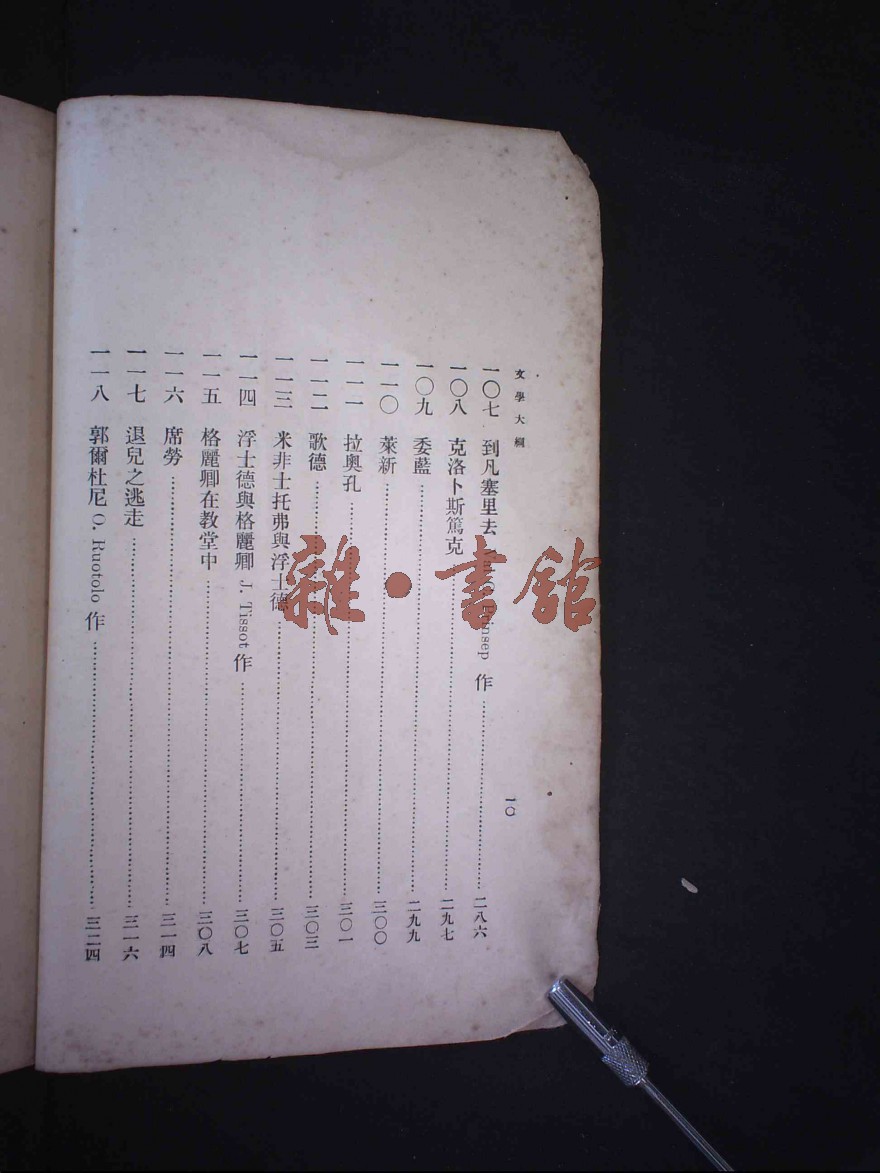 文學大綱
一〇七 到凡塞里去 Prinsep 作 二八六
一〇八 克洛卜斯篤克 二九七
一〇九 委藍 二九九
一一〇 萊新 三〇〇
一一一 拉奧孔 三〇一
一一二 歌德 三〇三
一一三 米非士托弗與浮士德 三〇五
一一四 浮士德與格麗卿 J. Tissot 作 三〇七
一一五 格麗卿在教堂中 三〇八
一一六 席勞 三一四
一一七 退兒之逃走 三一六
一一八 郭爾杜尼 O. Ruotolo 作 三二四
一〇
雜·書館